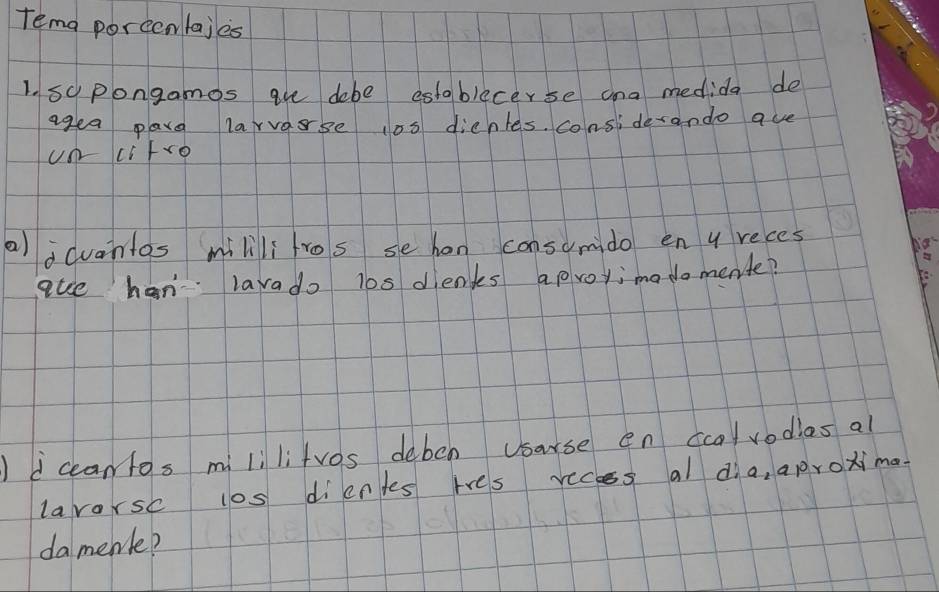 Tema porcentajes
1. supongamos que debe establecerse una medida de
agua para larvarse los dientes. considerando que
un litro
a) ¿cuántos mililitros se han consumido en 4 veces
que han lavado los dientes aproximadamente?
) ¿cuantos mililitros deben usarse en cuatro días al
lavarse los dientes tres veces al día, aproxima-
damente?